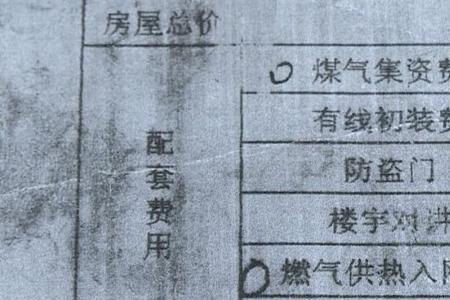 房屋总价
煤气集资费
有线初装费
配套费用
防盗门
楼宇对讲
燃气供热入网